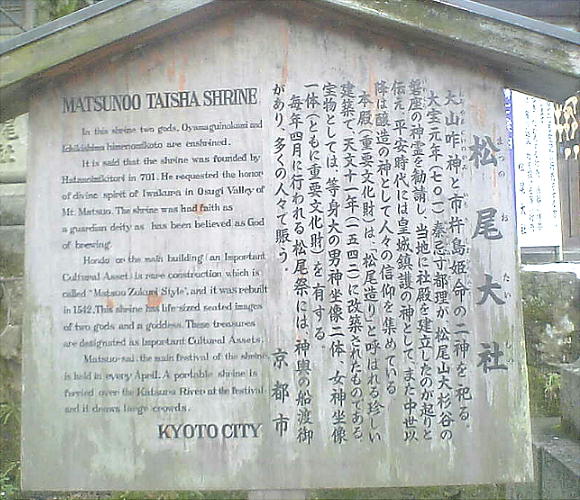 MATSUNOO TAISHA SHRINE
In this shrine two gods, Oyamaguinokami and
Ichikishima himenomikoto are enshrined.
It is said that the shrine was founded by
Hatanoimikitori in 701. He requested the honor
of divine spirit of Iwakura in Osugi Valley of
Mt. Matsuo. The shrine was had faith as
a guardian deity as has been believed as God
of brewing.
Hondo or the main building (an Important
Cultural Asset) is rare construction which is
called "Matsuo Zukuri Style", and it was rebuilt
in 1542. This shrine has life-sized seated images
of two gods and a goddess. These treasures
are designated as Important Cultural Assets.
Matsuo-sai the main festival of the shrine
is held in every April. A portable shrine is
ferried over the Katsura River at the festival
and it draws large crowds.
KYOTO CITY
松尾大社
まつのおたいしゃ
大山咋神と市杵島姫命の二神を祀る。
大宝元年(七〇一)秦忌寸都理が、松尾山大杉谷の
磐座の神霊を勧請し、当地に社殿を建立したのが起りと
伝え、平安時代には皇城鎮護の神として、また中世以
降は醸造の神として人々の信仰を集めている。
本殿(重要文化財)は、「松尾造り」と呼ばれる珍しい
建築で、天文十一年(一五四二)に改築されたものである。
宝物としては、等身大の男神坐像二体、女神坐像
一体(ともに重要文化財)を有する。
毎年四月に行われる松尾祭には、神輿の船渡御
があり、多くの人々で賑う。
京都市